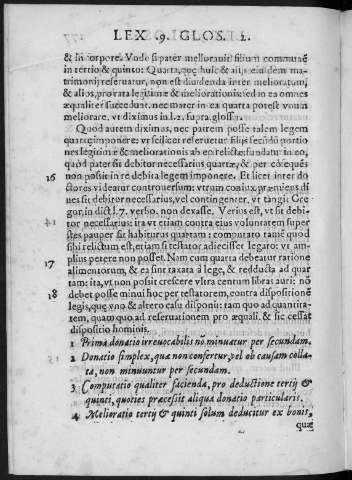 LEX .9. GLOS. 1.
& in corpore. Vnde si pater meliorauit filium communē
in tertio & quinto: Quarta, que huic & alijs eiusdem ma-
trimonij reseruatur, non est diuidenda inter melioratum,
& alios, pro rata legitimæ & meliorationis: sed in ea omnes
æqualiter succedunt. nec mater in ea quarta potest vnum
meliorare. vt diximus in.l.2. supra. glossa
Quod autem diximus, nec patrem posse talem legem
quartę imponere: vt scilicet reseruetur filijs secūdū portio
nes legitimæ & meliorationis ab eo relictæ: fundatur in eo,
quòd pater sit debitor necessarius quartæ, & per cōsequēs
16 non possit in re debita legem imponere. Et licet inter do
ctores videatur controuersum: vtrum coniux præmiens di
ues sit debitor necessarius, vel contingenter, vt tangit Gre
gor. in dict.l.7. verbo. non dexasse. Verius est, vt sit debi-
tor necessarius: ita vt etiam contra eius voluntatem super
stes pauper sit habiturus quartam: computato tamē quod
sibi relictum est, etiam si testator adiecisset legato: vt am-
17 plius petere non posset. Nam cum quarta debeatur ratione
alimentorum, & ea sint taxata à lege, & reducta ad quar
tam: ita, vt non possit crescere vltra centum libras auri: nō
18 debet posse minui hoc per testatorem, contra dispositionē
legis, que vno & altero casu disponit: tam quo ad quantita-
tem, quam quo ad reseruationem pro æquali. & sic cessat
dispositio hominis.
1 Prima donatio irreuocabilis nō minuatur per secundam.
2 Donatio simplex, qua non confertur, vel ob causam colla-
ta, non minuuntur per secundam.
3 Computatio qualiter facienda, pro deductione tertij &
quinti, quoties præcessit aliqua donatio particularis.
4 Melioratio tertij & quinti solum deducitur ex bonis,
quæ